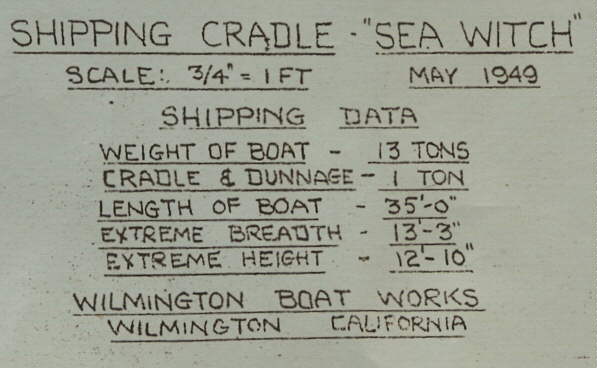 SHIPPING CRADLE - "SEA WITCH"
SCALE: 3/4" = 1 FT MAY 1949
SHIPPING DATA
WEIGHT OF BOAT - 13 TONS
CRADLE & DUNNAGE - 1 TON
LENGTH OF BOAT - 35'-0"
EXTREME BREADTH - 13'-3"
EXTREME HEIGHT - 12'-10"
WILMINGTON BOAT WORKS
WILMINGTON CALIFORNIA